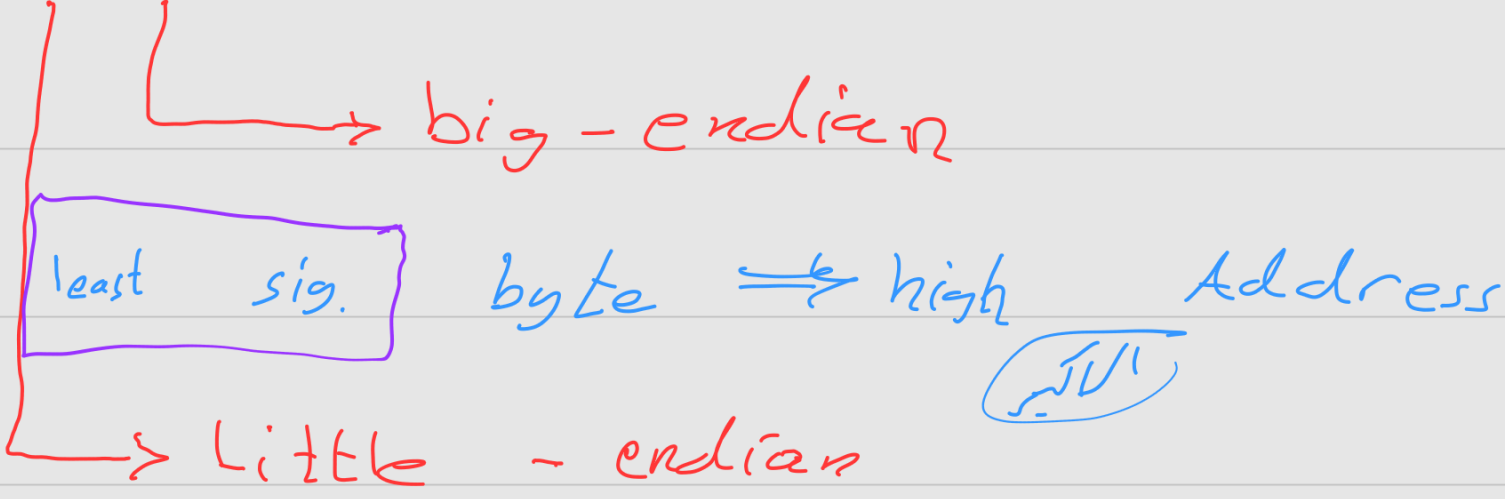 big-endian
least sig. byte ⇒ high Address
Little - endian